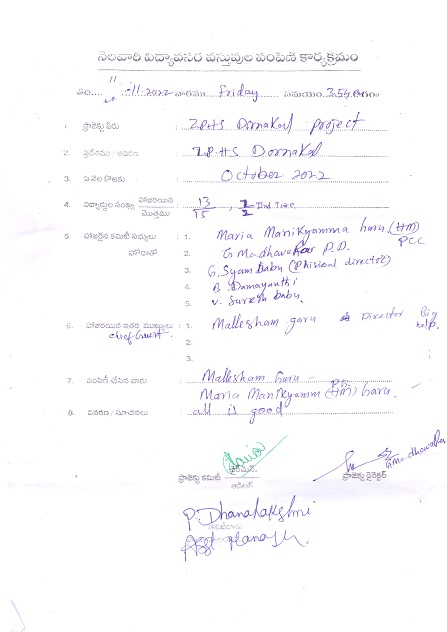 నెలవారి విద్యావసర వస్తువుల పంపిణి కార్యక్రమం
తేది.... 11-11-2022 వారము Friday సమయం 3.54
1 ప్రాజెక్టు పేరు Z.P.H.S Dornakal project
2. ప్రదేశము / ఆవరణ Z.P.H.S Dornakal
3. ఏ నెల కొరకు October 2022
4. విద్యార్థుల సంఖ్య హాజరయిన 13 , 2 IInd Time
మొత్తము 15 2
5. హాజరైన కమిటీ సభ్యులు 1. Maria Manikyamma garu (HM)
హోదాతో 2. G Madhava Rao P.D. PCC
3. G. Syam babu (Phisical director)
4. B Damayanthi
5. V. Suresh babu.
6. హాజరయిన ఇతర ముఖ్యులు : 1. Mallesham garu Director Big help.
chief Guest. 2.
3.
7. పంపిణీ చేసిన వారు Mallesham Garu -
Maria Manikyamm (HM) Garu.
8. వివరణ / సూచనలు all is good
ప్రాజెక్టు కమిటీ ఛైర్మన్ GMadhavaRao
ఆడిటర్ ప్రాజెక్టు డైరెక్టర్
P. Dhanalakshmi